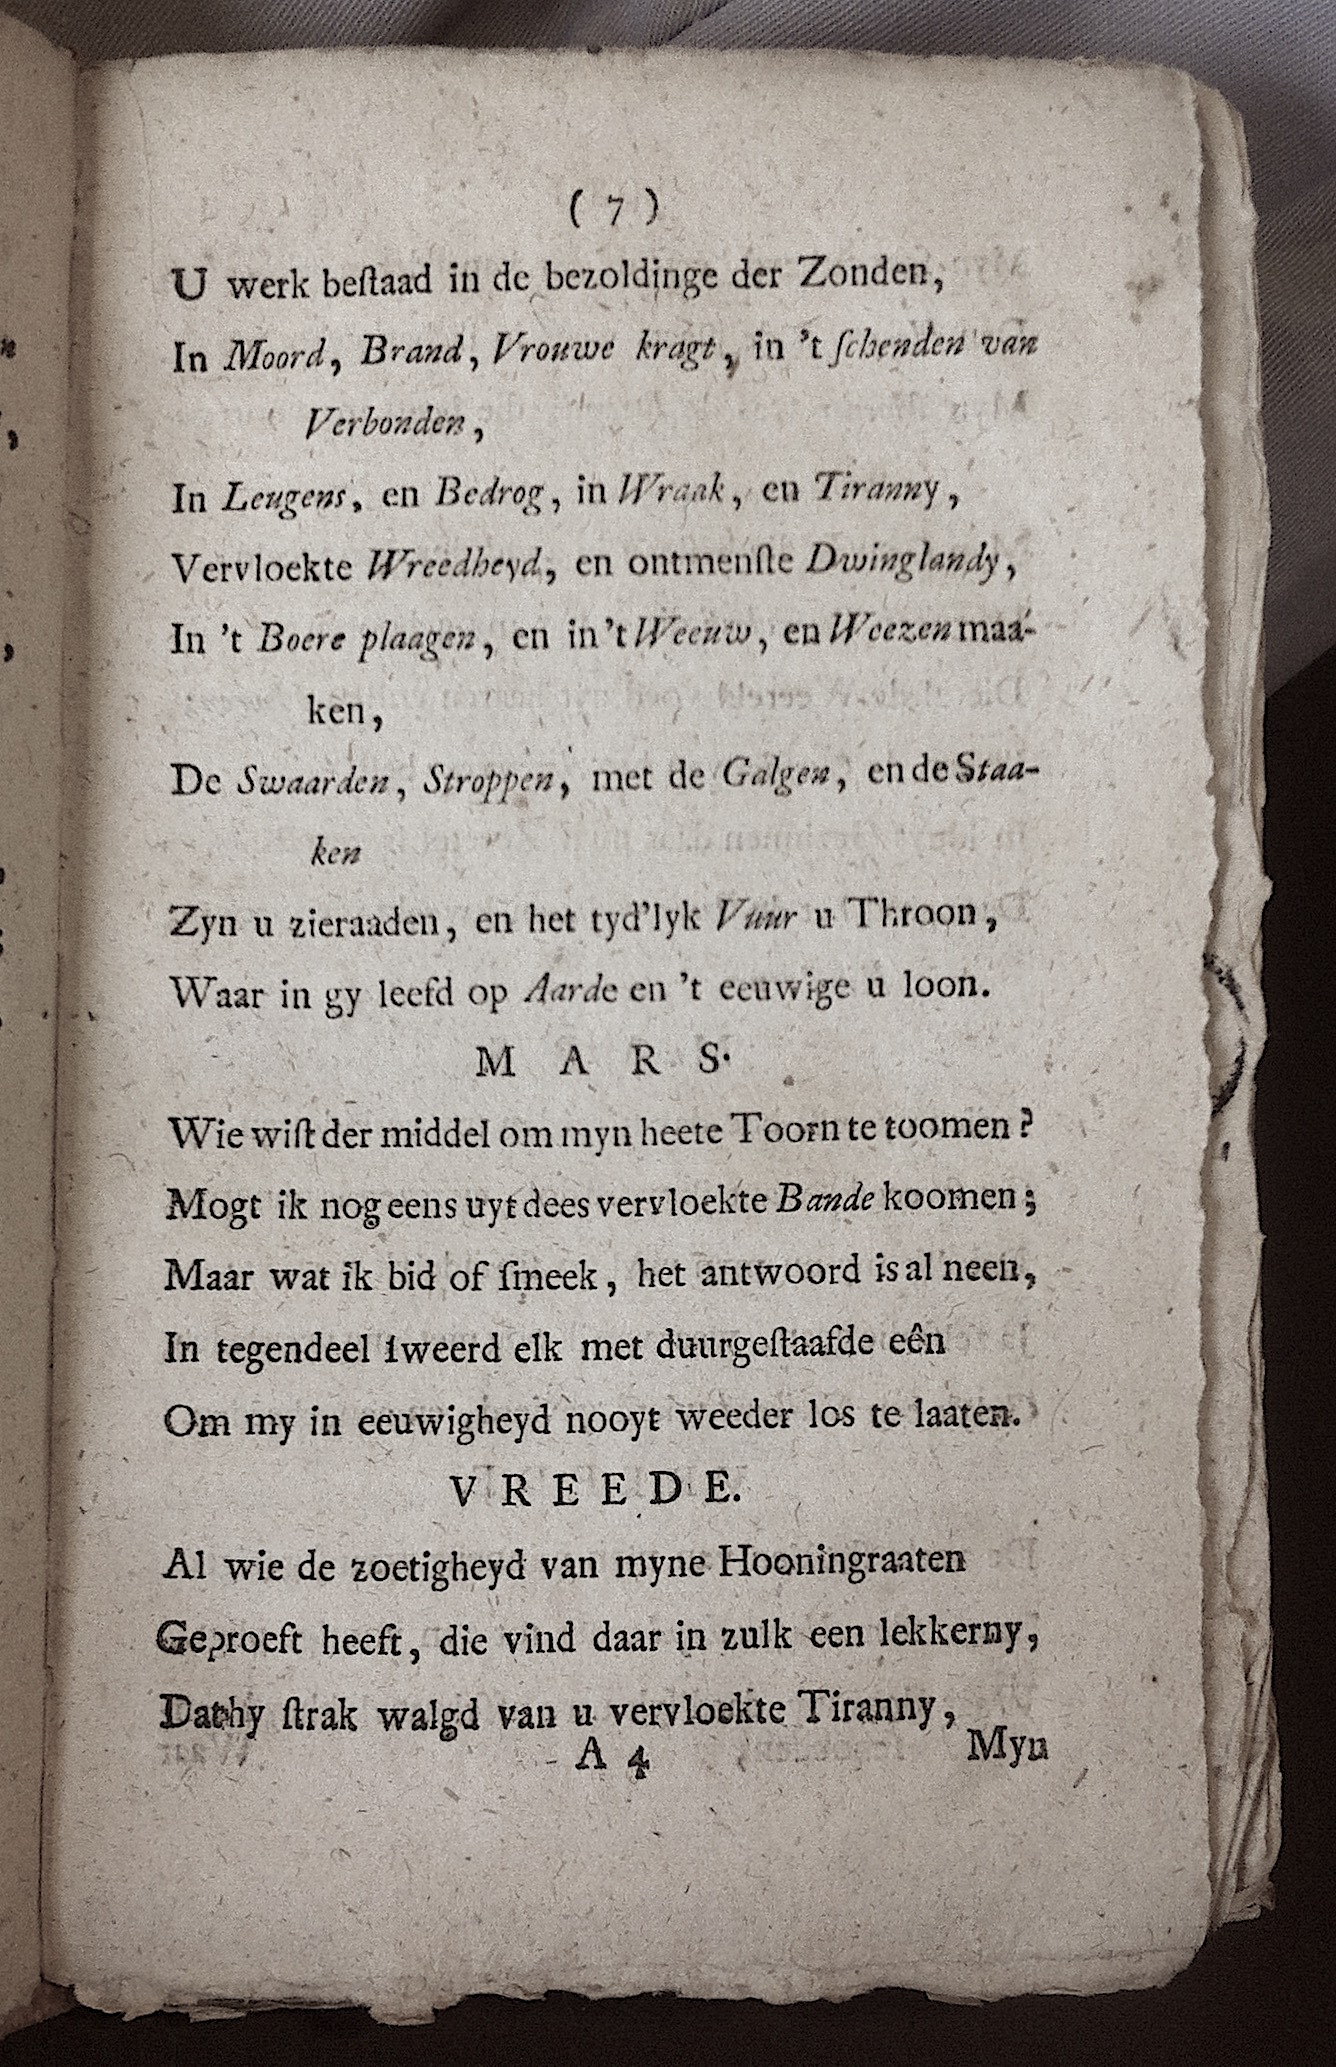 ( 7 )
U werk beſtaad in de bezoldinge der Zonden,
In Moord, Brand, Vrouwe kragt, in 't ſchenden van
Verbonden,
In Leugens, en Bedrog, in Wraak, en Tiranny,
Vervloekte Wreedheyd, en ontmenſte Dwinglandy,
In 't Boere plaagen, en in 't Weeuw, en Weezen maa-
ken,
De Swaarden, Stroppen, met de Galgen, en de Staa-
ken
Zyn u zieraaden, en het tyd'lyk Vuur u Throon,
Waar in gy leefd op Aarde en 't eeuwige u loon.
M A R S.
Wie wiſt der middel om myn heete Toorn te toomen?
Mogt ik nog eens uyt dees vervloekte Bande koomen;
Maar wat ik bid of ſmeek, het antwoord is al neen,
In tegendeel ſweerd elk met duurgeſtaafde eên
Om my in eeuwigheyd nooyt weeder los te laaten.
V R E E D E.
Al wie de zoetigheyd van myne Hooningraaten
Geproeft heeft, die vind daar in zulk een lekkerny,
Dat hy ſtrak walgd van u vervloekte Tiranny,
A 4 Myn